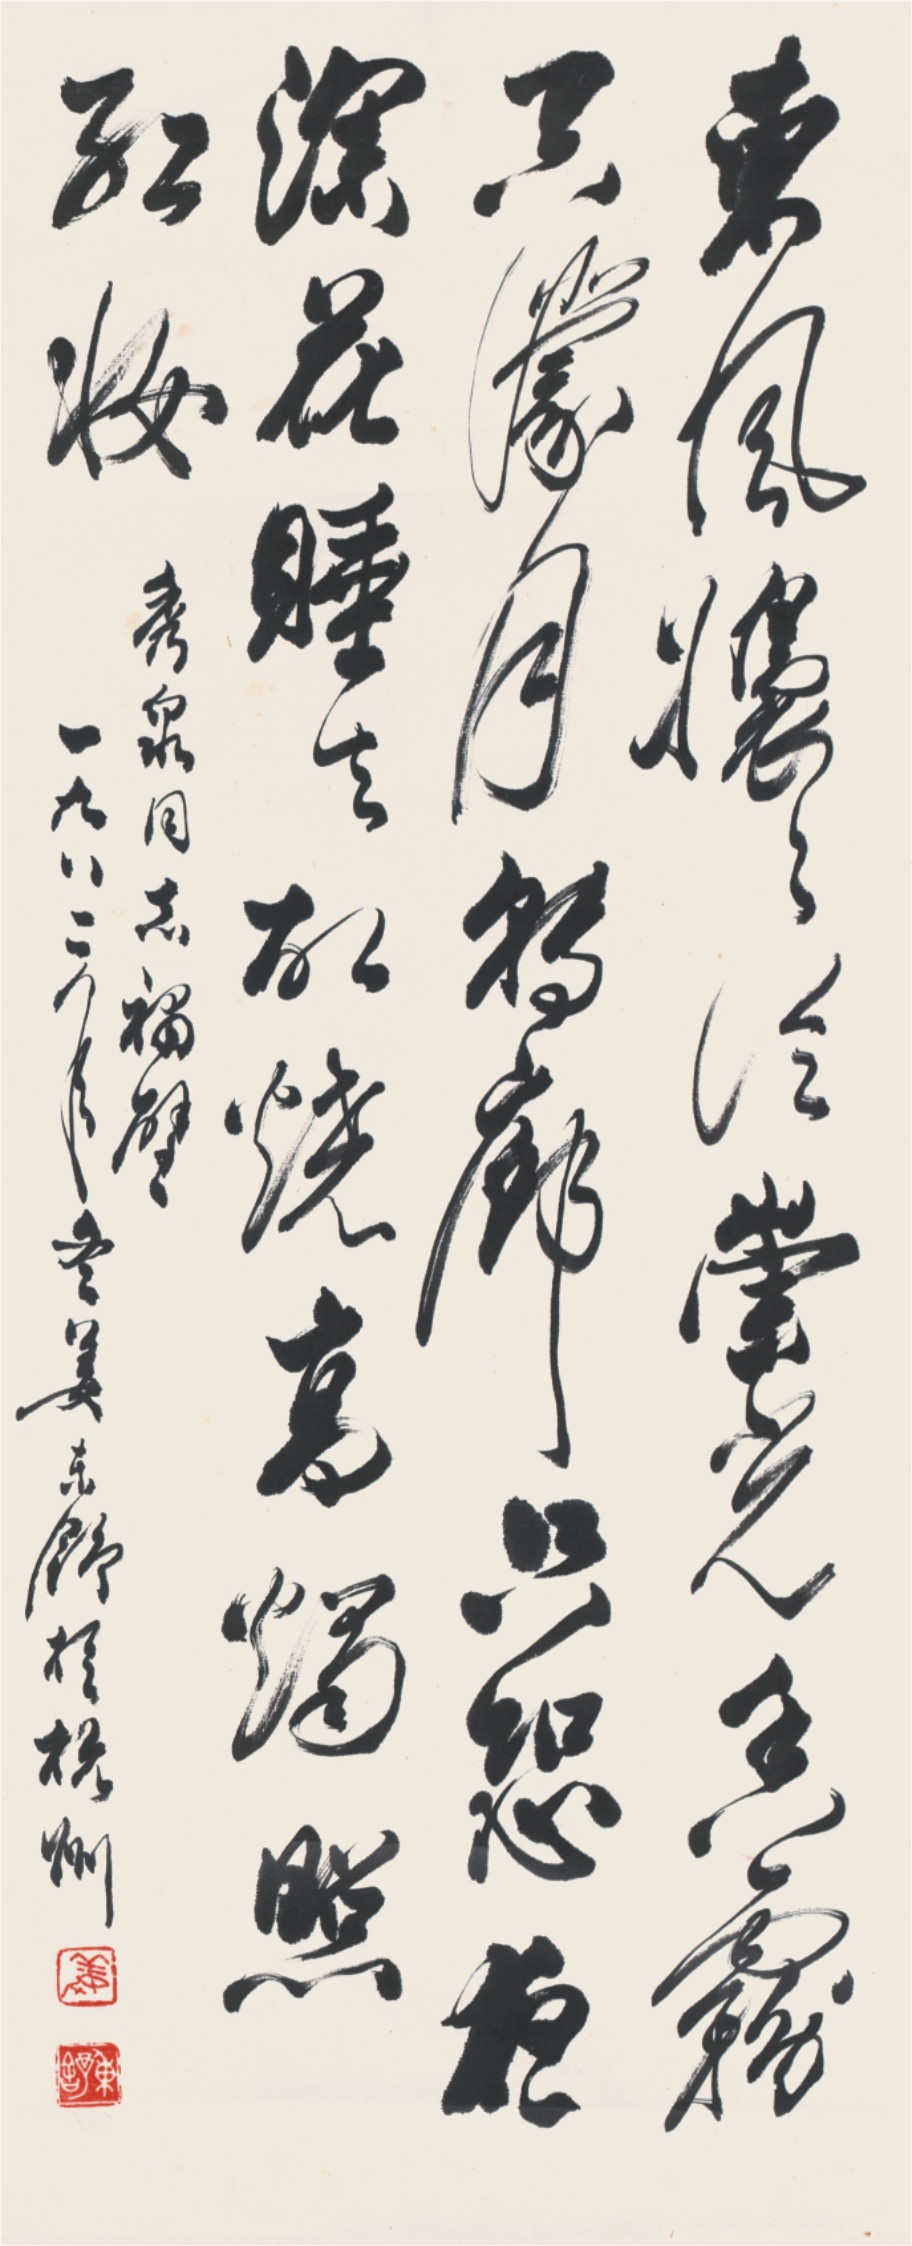 東風嬝々泛崇光香霧
空濛月轉廊只恐夜
深花睡去故燒高燭照
紅妝
秀泉同志補壁
一九八二年冬姜东舒於杭州
姜
東舒